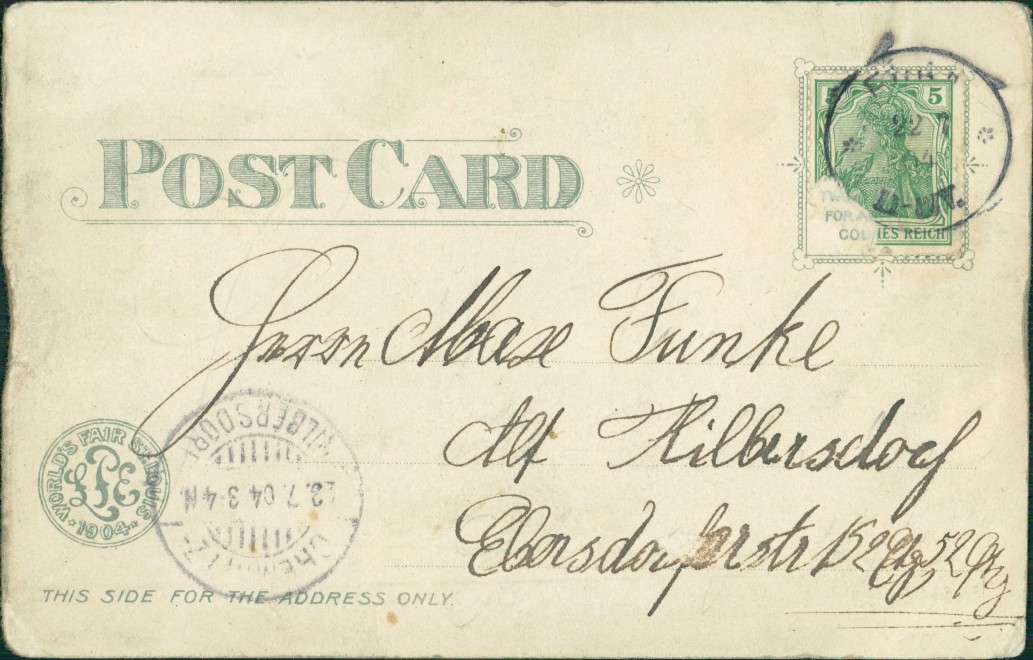 POST CARD
5
22 7
4
FOR A
IES REICH
Herrn Max Funke
Alt Hilbersdorf
Ebersdorferstr 15
WORLD'S FAIR ST. LOUIS
1904
HILBERSDORF
7.04 3-4 N.
CHEMNITZ-
THIS SIDE FOR THE ADDRESS ONLY.